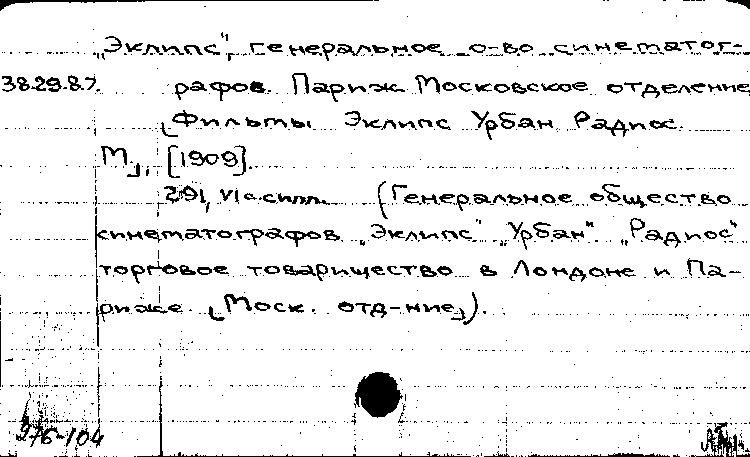 „Эклипс", генеральное о-во синематог-
38.29.8.7. рафов. Париж. Московское отделение
Фильмы Эклипс Урбан Радиос.
М., [1909].
291, VI с. илл. (Генеральное общество
синематографов „Эклипс" „Урбан" „Радиос"
торговое товарищество в Лондоне и Па-
риже (Моск. отд-ние)).
276-104